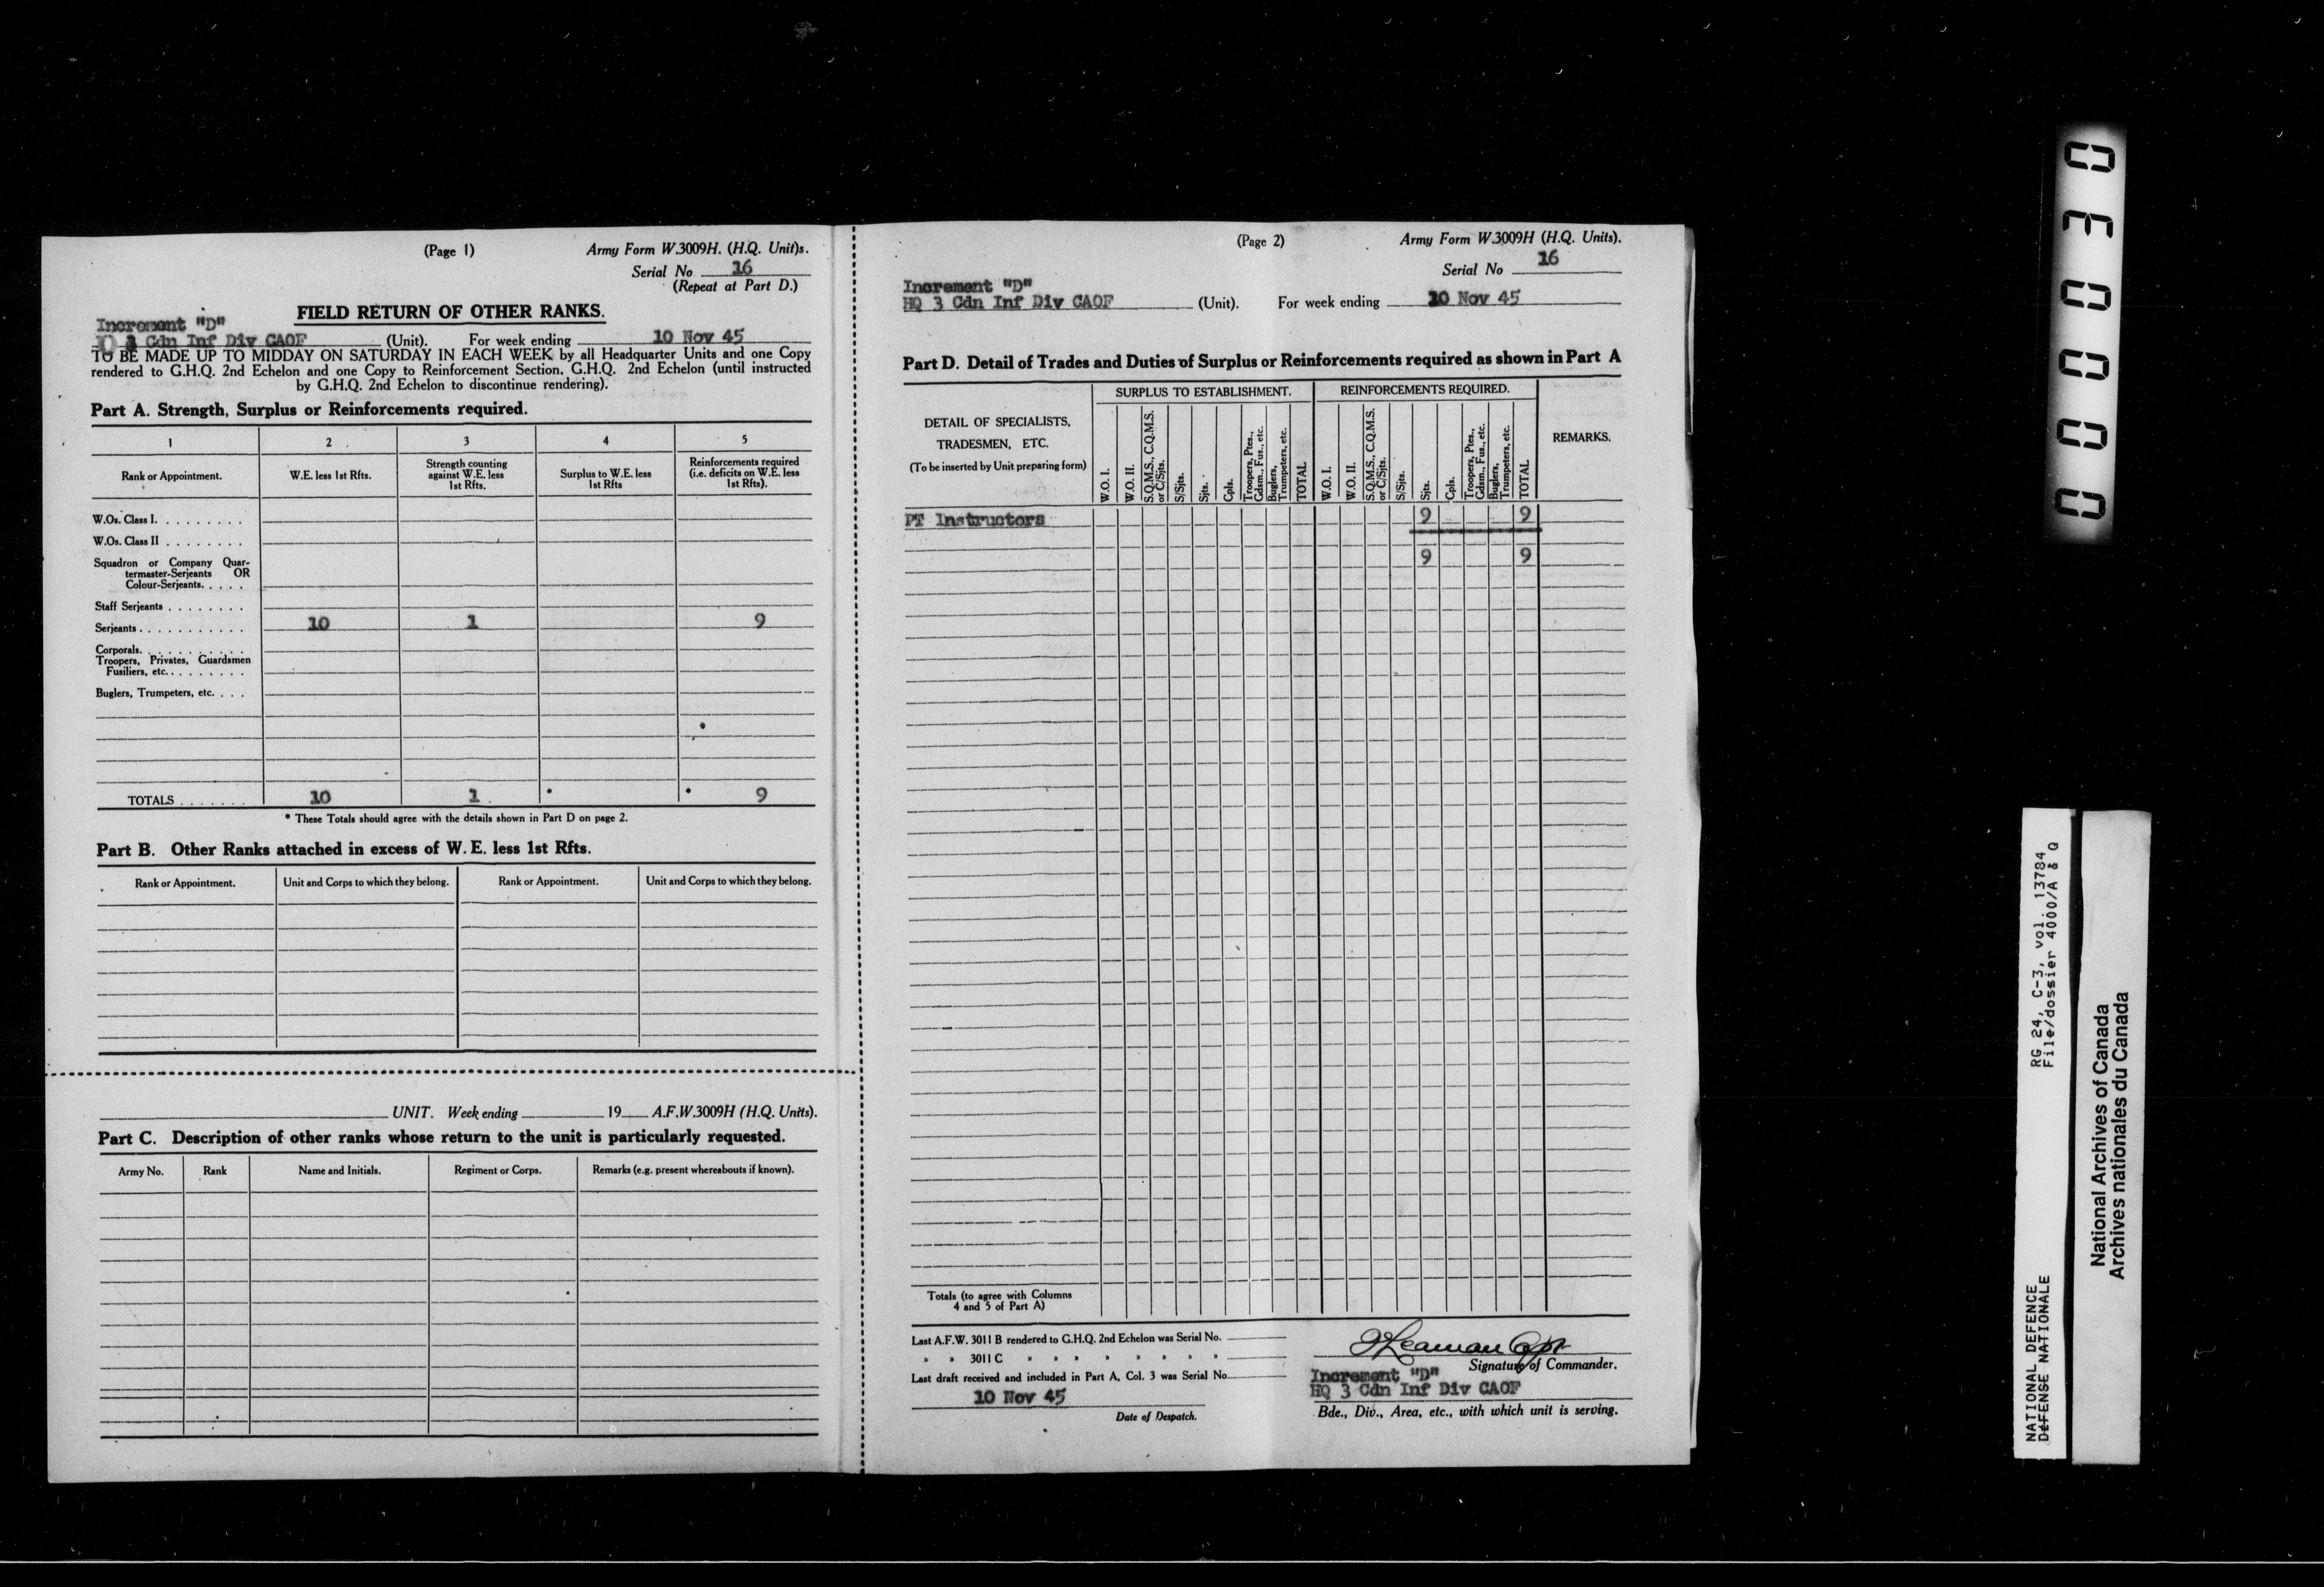 (Page 1) Army Form W.3009H. (H.Q. Unit)s.
Serial No 16
(Repeat at Part D.)
FIELD RETURN OF OTHER RANKS.
Increment "D"
3 Cdn Inf Div CAOF (Unit). For week ending 10 Nov 45
TO BE MADE UP TO MIDDAY ON SATURDAY IN EACH WEEK by all Headquarter Units and one Copy
rendered to G.H.Q. 2nd Echelon and one Copy to Reinforcement Section, G.H.Q. 2nd Echelon (until instructed
by G.H.Q. 2nd Echelon to discontinue rendering).
Part A. Strength, Surplus or Reinforcements required.
1 2 3 4 5
Rank or Appointment. W.E. less 1st Rfts. Strength counting against W.E. less 1st Rfts. Surplus to W.E. less 1st Rfts Reinforcements required (i.e. deficits on W.E. less 1st Rfts).
W.Os. Class I.
W.Os. Class II
Squadron or Company Quar-
termaster-Serjeants OR
Colour-Serjeants.
Staff Serjeants
Serjeants 10 1 9
Corporals.
Troopers, Privates, Guardsmen
Fusiliers, etc.
Buglers, Trumpeters, etc.
TOTALS 10 1 * * 9
* These Totals should agree with the details shown in Part D on page 2.
Part B. Other Ranks attached in excess of W. E. less 1st Rfts.
Rank or Appointment. Unit and Corps to which they belong. Rank or Appointment. Unit and Corps to which they belong.
UNIT. Week ending 19 A.F.W.3009H (H.Q. Units).
Part C. Description of other ranks whose return to the unit is particularly requested.
Army No. Rank Name and Initials. Regiment or Corps. Remarks (e.g. present whereabouts if known).
(Page 2) Army Form W.3009H (H.Q. Units).
Serial No 16
Increment "D"
HQ 3 Cdn Inf Div CAOF (Unit). For week ending 10 Nov 45
Part D. Detail of Trades and Duties of Surplus or Reinforcements required as shown in Part A
SURPLUS TO ESTABLISHMENT. REINFORCEMENTS REQUIRED.
DETAIL OF SPECIALISTS,
TRADESMEN, ETC.
(To be inserted by Unit preparing form)
W.O. I. W.O. II. S.Q.M.S., C.Q.M.S. or C/Sjts. S/Sjts. Sjts. Cpls. Troopers, Ptes., Gdsm., Fus., etc. Buglers, Trumpeters, etc. TOTAL W.O. I. W.O. II. S.Q.M.S., C.Q.M.S. or C/Sjts. S/Sjts. Sjts. Cpls. Troopers, Ptes., Gdsm., Fus., etc. Buglers, Trumpeters, etc. TOTAL REMARKS.
PT Instructors 9 9
9 9
Totals (to agree with Columns
4 and 5 of Part A)
Last A.F.W. 3011 B rendered to G.H.Q. 2nd Echelon was Serial No.
" " 3011 C " " " " " " " "
Last draft received and included in Part A, Col. 3 was Serial No.
10 Nov 45
Date of Despatch.
Signature of Commander.
Increment "D"
HQ 3 Cdn Inf Div CAOF
Bde., Div., Area, etc., with which unit is serving.
000030
RG 24, C-3, vol. 13784
File/dossier 4000/A & Q
NATIONAL DEFENCE
DÉFENSE NATIONALE
National Archives of Canada
Archives nationales du Canada